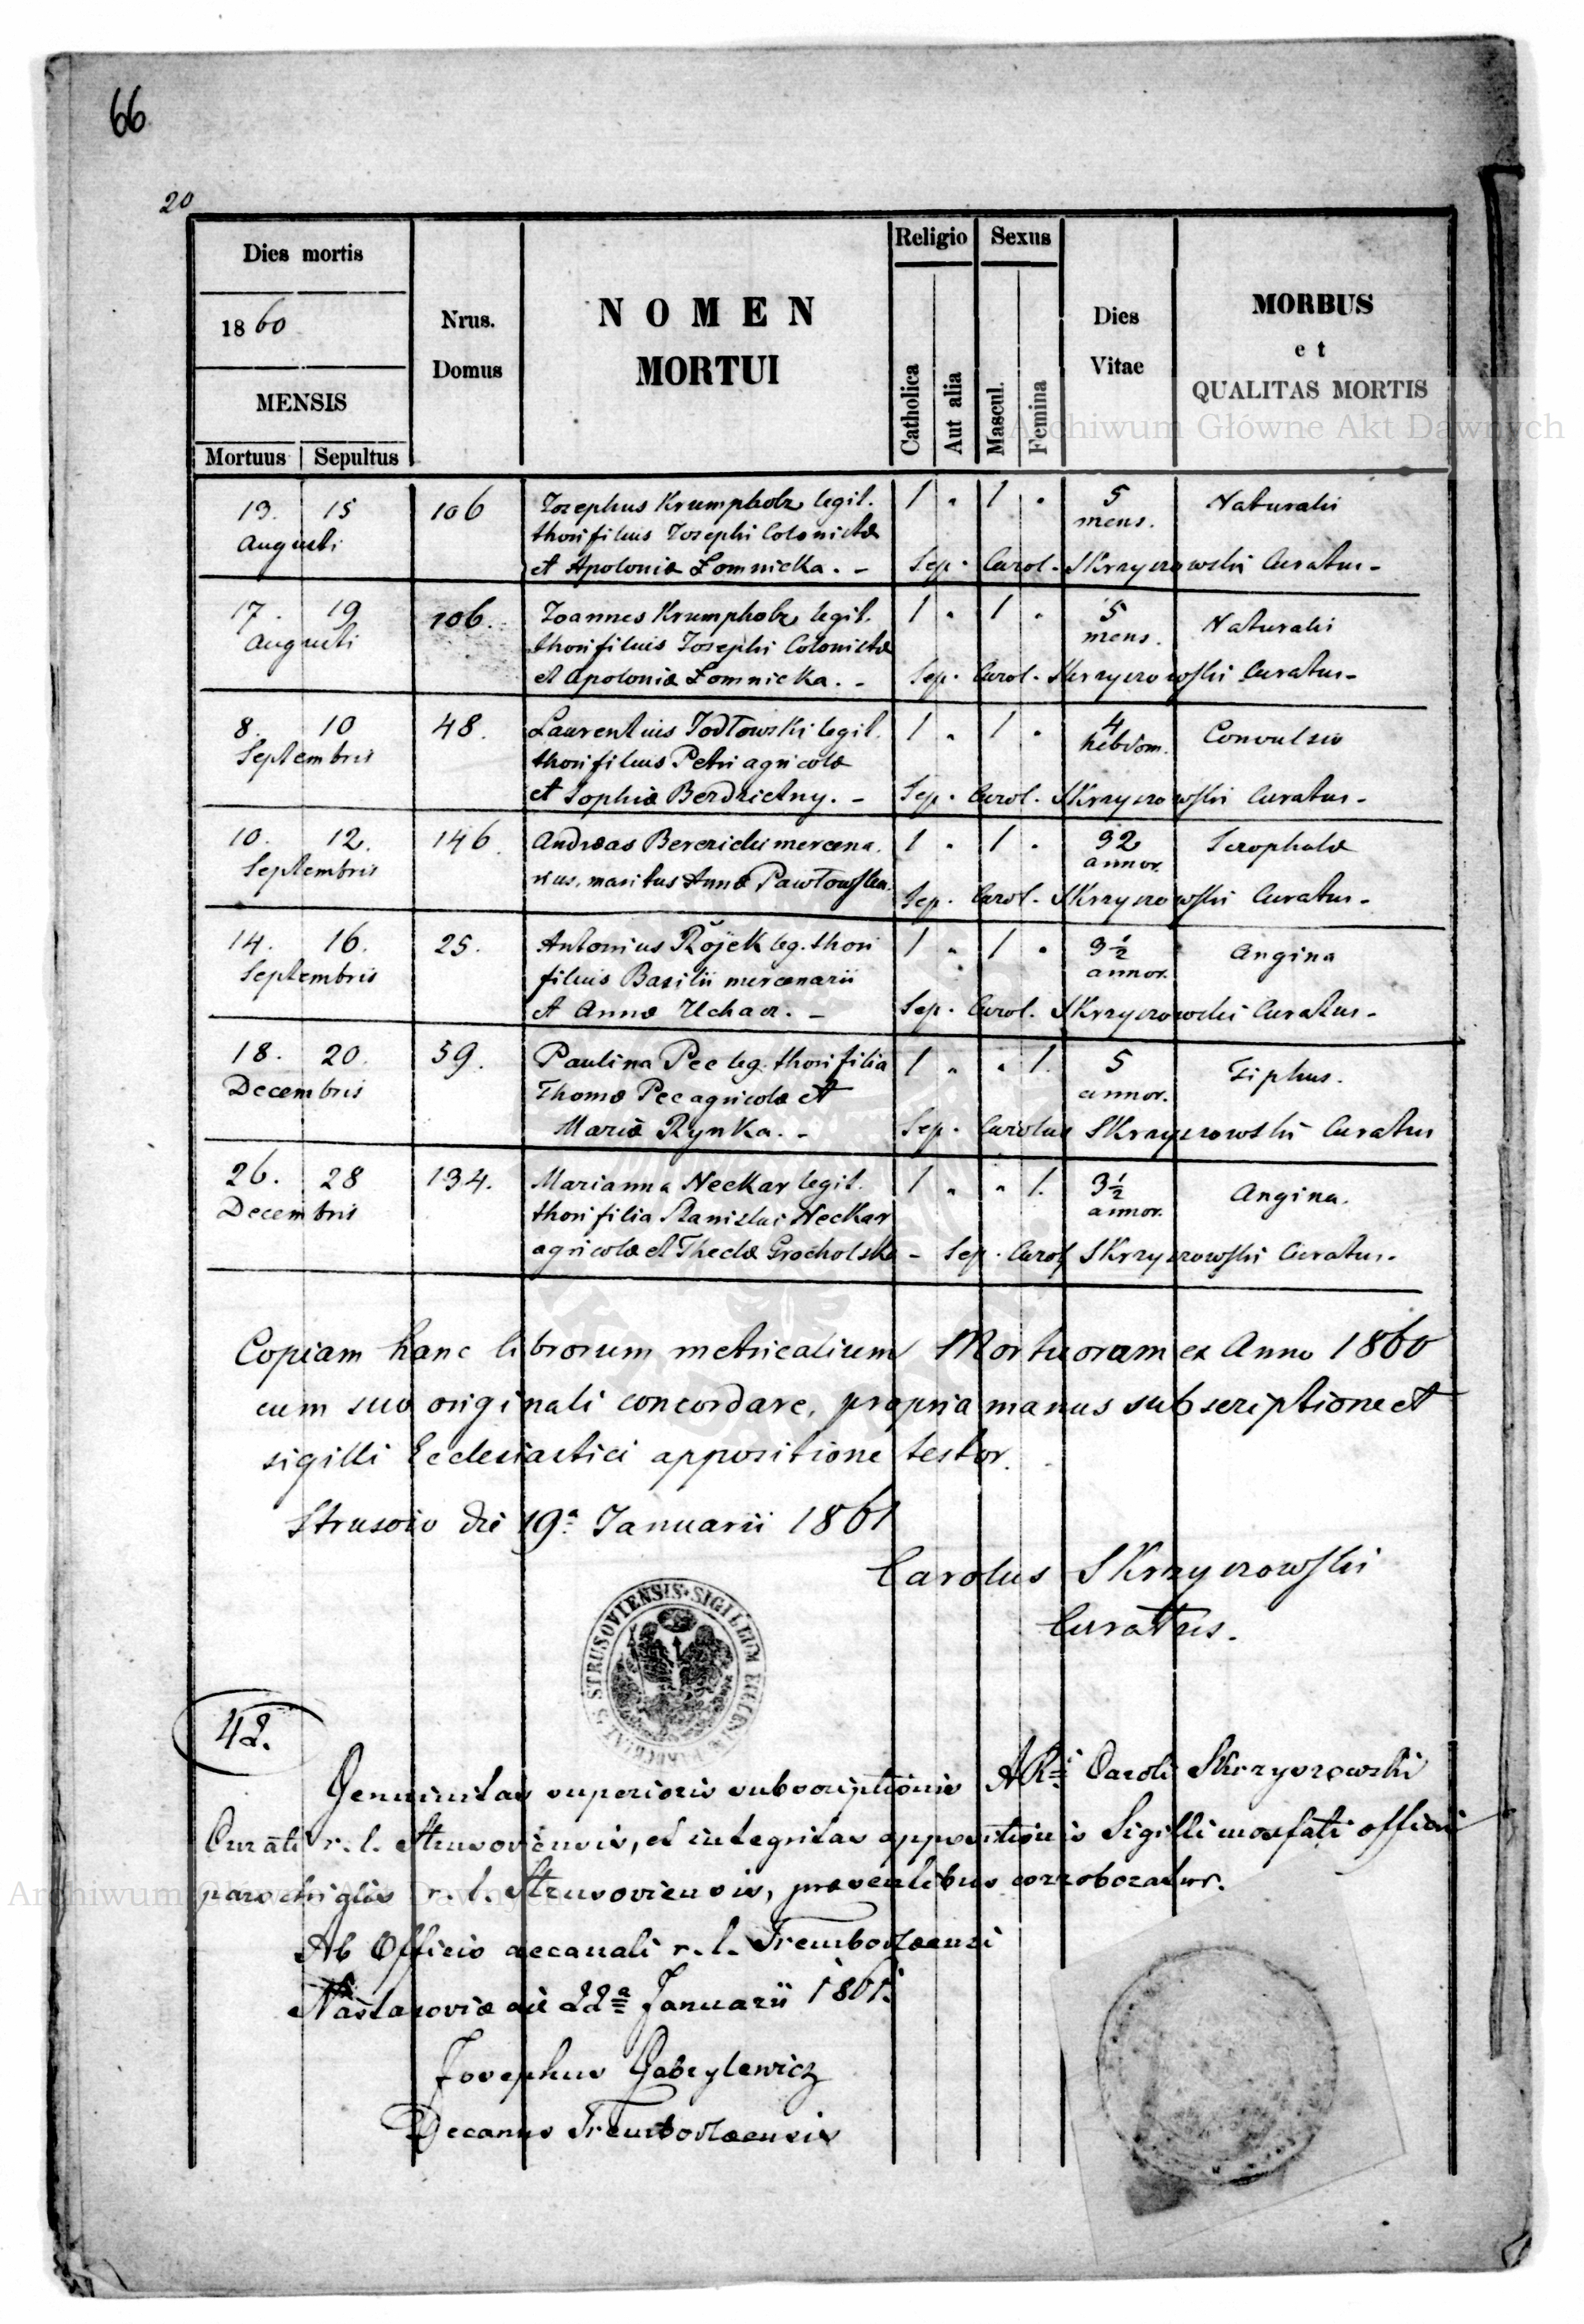 66
20
Dies mortis
1860
MENSIS
Mortuus Sepultus
Nrus.
Domus
NOMEN
MORTUI
Religio
Catholica
Aut alia
Sexus
Mascul.
Femina
Dies
Vitae
MORBUS
et
QUALITAS MORTIS
Archiwum Główne Akt Dawnych
13. 15 106 Josephus Krumpholz legit. 1 " 1 " 5 Naturalis
Augusti thori filius Josephi Colonistæ mens.
et Apoloniæ Łomnicka. - Sep. Carol. Skrzyszowski Curatus -
17. 19 106. Joannes Krumpholz legit. 1 " 1 " 5 Naturalis
Augusti thori filius Josephi Colonistæ mens.
et Apoloniæ Łomnicka. - Sep. Carol. Skrzyszowski Curatus -
8. 10 48. Laurentius Jodłowski legit. 1 " 1 " 4 Convulsio
Septembris thori filius Petri agricolæ hebdom.
et Sophiæ - Sep. Carol. Skrzyszowski Curatus -
10. 12. 146. Andreas mercena 1 " 1 " 32 Scrophulæ
Septembris rius, maritus Annæ annor.
Sep. Carol. Skrzyszowski Curatus -
14. 16. 25. Antonius leg. thori 1 " 1 " 3½ Angina
Septembris filius Basilii mercenarii annor.
et Annæ - Sep. Carol. Skrzyszowski Curatus -
18. 20. 59. Paulina Pec leg. thori filia 1 " " 1. 5 Tiphus.
Decembris Thomæ Pec agricolæ et annor.
Mariæ Rynka. - Sep. Carolus Skrzyszowski Curatus
26. 28 134. Marianna Neckar legit. 1 " " 1. 3½ Angina.
Decembris thori filia Stanislai Neckar annor.
agricolæ et Theclæ Grocholska - Sep. Carol Skrzyszowski Curatus -
Copiam hanc librorum metricalium Mortuorum ex Anno 1860
cum suo originali concordare, propria manus subscriptione et
sigilli Ecclesiastici appositione testor.
Strusow die 19ª Januarii 1861
Carolus Skrzyszowski
Curatus.
STRUSOVIENSIS SIGILLUM ECCLESIÆ
42.
Genuinitas superioris subscriptionis Caroli Skrzyszowski
Curati r. l. Strusoviensis, et integritas appositionis Sigilli officii
parochialis r. l. Strusoviensis, præsentibus corroboratur.
Archiwum Główne Akt Dawnych
Ab Officio decanali r. l. Trembovlaensi
Nastasoviæ die 22ª Januarii 1861.
Josephus Gabrylewicz
Decanus Trembovlaensis